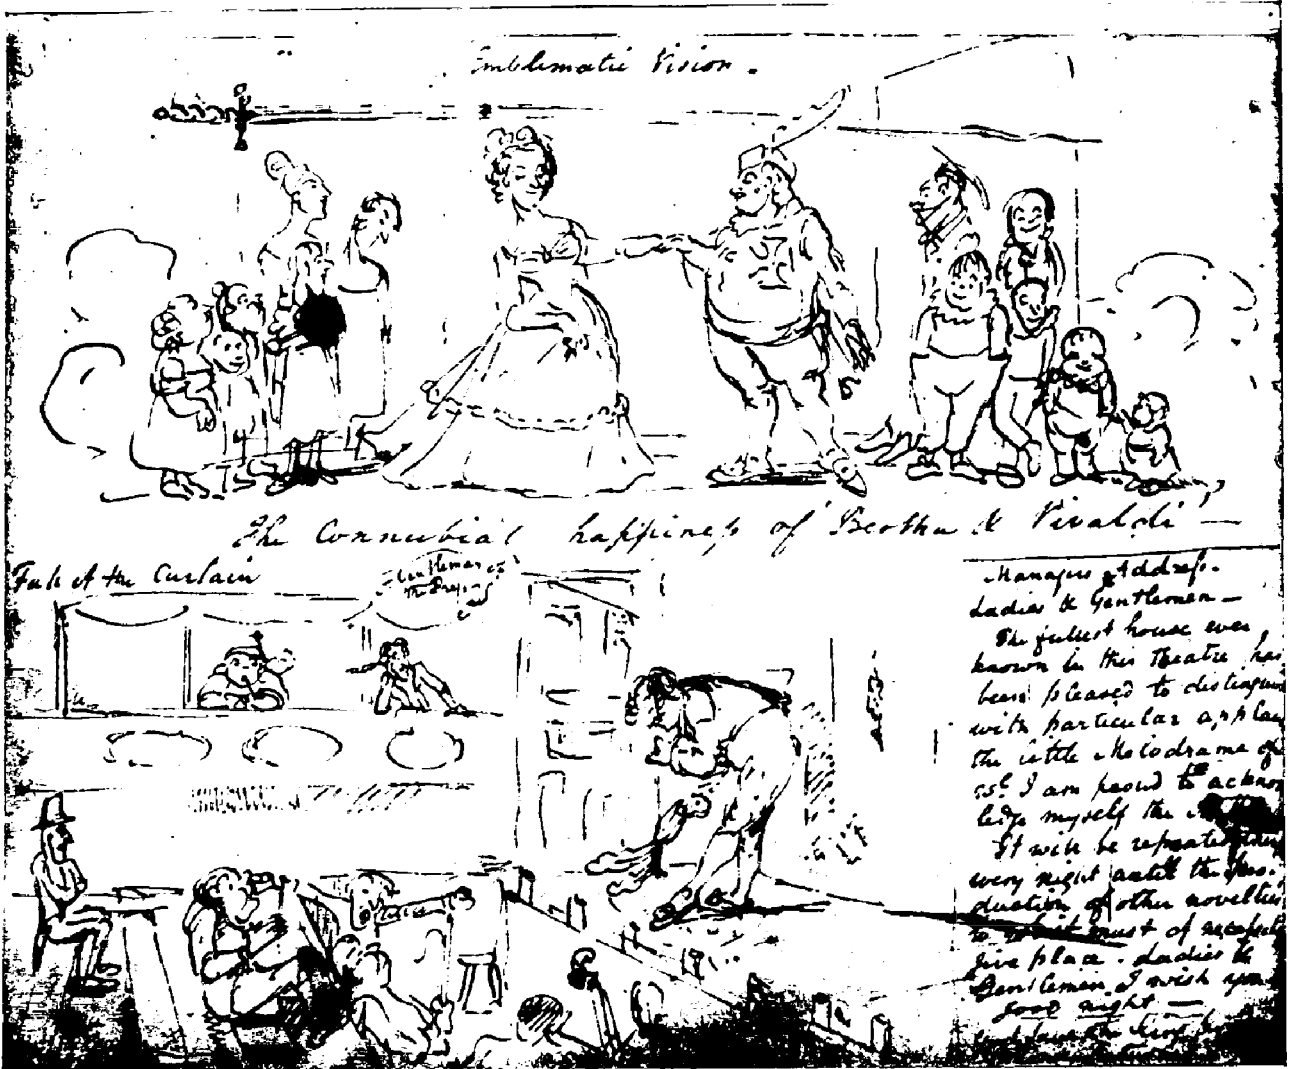 Emblematic Vision.
The Connubial happiness of Bertha & Vivaldi
Fall of the Curtain
Gentlemen of
the Press
Managers Address.
Ladies & Gentlemen —
The fullest house ever
known in this Theatre has
been pleased to distinguish
with particular applau
the little Melodrame of
I am proud to acknow
ledge myself the
It will be repeated
every night until the pro.
duction of other novelties
to must of necessity
give place. Ladies &
Gentlemen I wish you
good night —